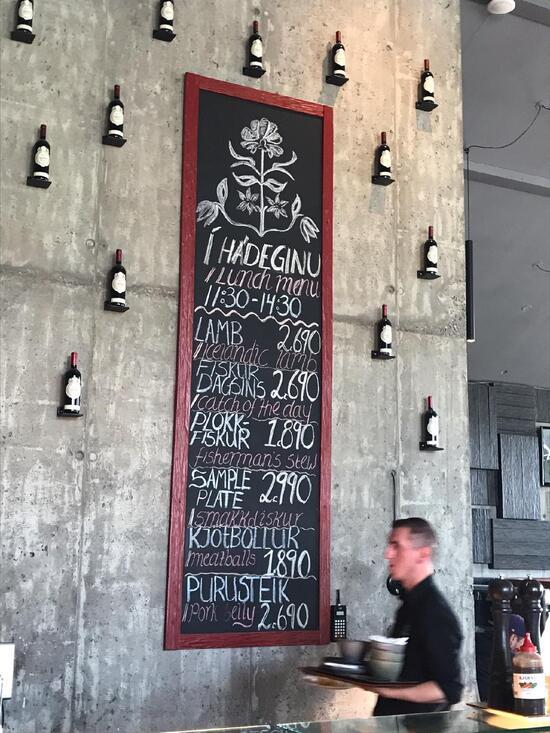 Í HÁDEGINU
/Lunch menu
11:30-14:30
LAMB 2.690
/icelandic lamb
FISKUR
DAGSINS 2.690
/catch of the day
PLOKK-
FISKUR 1.890
/fisherman's stew
SAMPLE
PLATE 2.990
/smakkdiskur
KJÖTBOLLUR
/meatballs 1.890
PURUSTEIK
/Pork belly 2.690